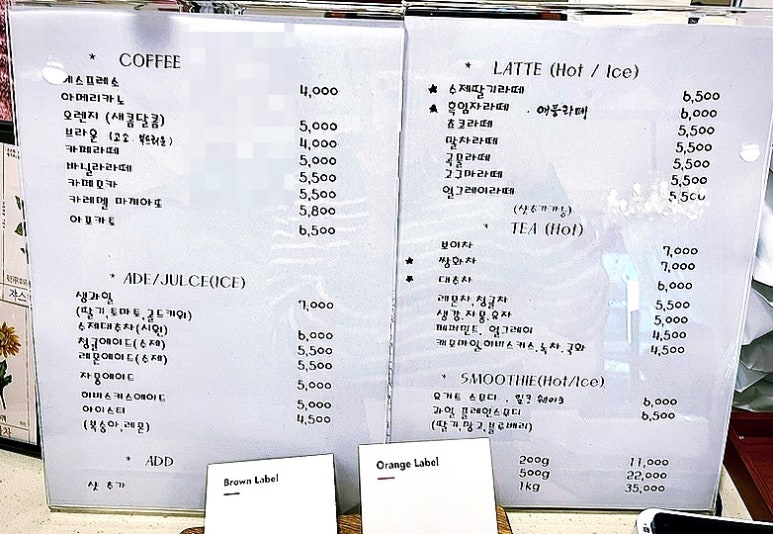 * COFFEE
에스프레소 4,000
아메리카노
오렌지 (새콤달콤) 5,000
브라운 (고소·부드러움) 4,000
카페라떼 5,000
바닐라라떼 5,500
카페모카 5,500
카레멜 마끼아또 5,800
아포카토 6,500
* ADE/JUICE(ICE)
생과일 7,000
(딸기,토마토,골드키위)
수제대추차(시원) 6,000
청귤에이드(수제) 5,500
레몬에이드(수제) 5,500
자몽에이드 5,000
히비스커스에이드 5,000
아이스티 4,500
(복숭아,레몬)
* ADD
샷 추가
Brown Label
* LATTE (Hot / Ice)
★ 수제딸기라떼 6,500
★ 흑임자라떼 · 6,000
쵸코라떼 5,500
말차라떼 5,500
곡물라떼 5,500
고구마라떼 5,500
얼그레이라떼 5,500
(샷추가가능)
* TEA (Hot)
보이차 7,000
★ 쌍화차 7,000
★ 대추차 6,000
레몬차,청귤차 5,500
생강,자몽,유자 5,000
페퍼민트, 얼그레이 4,500
캐모마일,히비스커스,녹차,국화 4,500
* SMOOTHIE(Hot/Ice)
요거트 스무디 · 밀크 쉐이크 6,000
과일 플레인스무디 6,500
(딸기,망고,블루베리)
200g 11,000
500g 22,000
1kg 35,000
Orange Label